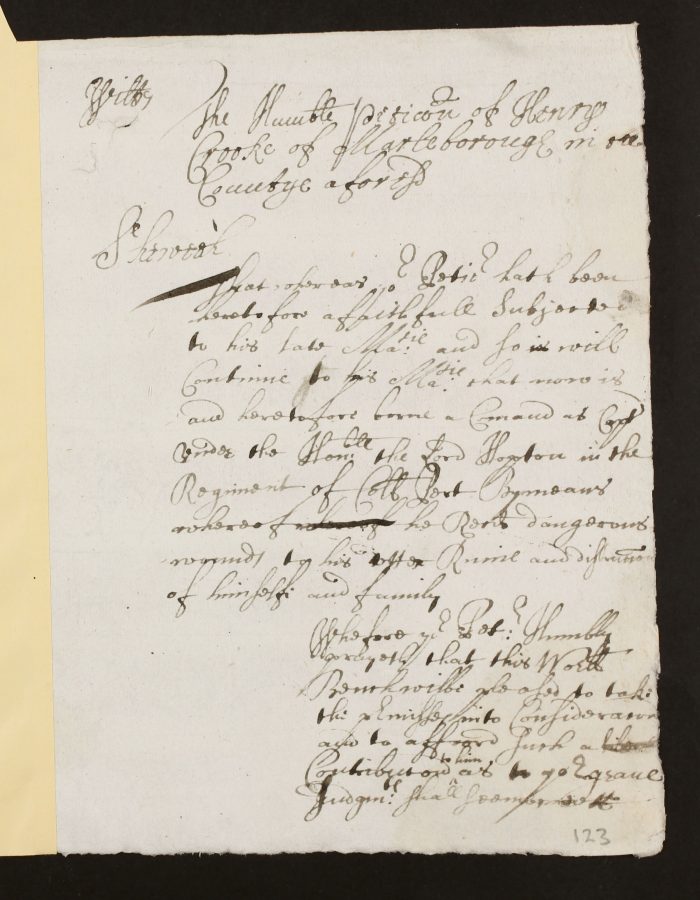 Wilts
The Humble peticon of Henry
Crooke of Marleborough in the
Countye aforesd
Sheweth
That whereas yor Petir hath been
heretofore a faithfull Subjecte
to his late Matie and so is will
Continue to his Matie that now is
and heretofore borne a Comand as Capt
under the Honble the Lord Hopton in the
Regiment of Coll
whereof whereof he Recd dangerous
wounds to his utter Ruine and distruction
of himselfe and family
Wherfore yor Petr Humbly
prayeth that this Worll
Bench wilbe pleased to take
the pmisses into Consideracon
and to afford such a
Contribucon to him as to yor grave
Judgmts shall seeme meett
123